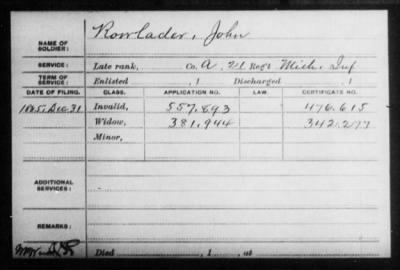 NAME OF SOLDIER: Rowlader, John
SERVICE: Late rank, Co. A, 21 Reg't Mich. Inf
TERM OF SERVICE: Enlisted , 1 Discharged , 1
DATE OF FILING. CLASS. APPLICATION NO. LAW. CERTIFICATE NO.
1885, Dec. 31 Invalid, 557.893 476.615
Widow, 381.944 342.277
Minor,
ADDITIONAL SERVICES:
REMARKS:
Died , 1 , at